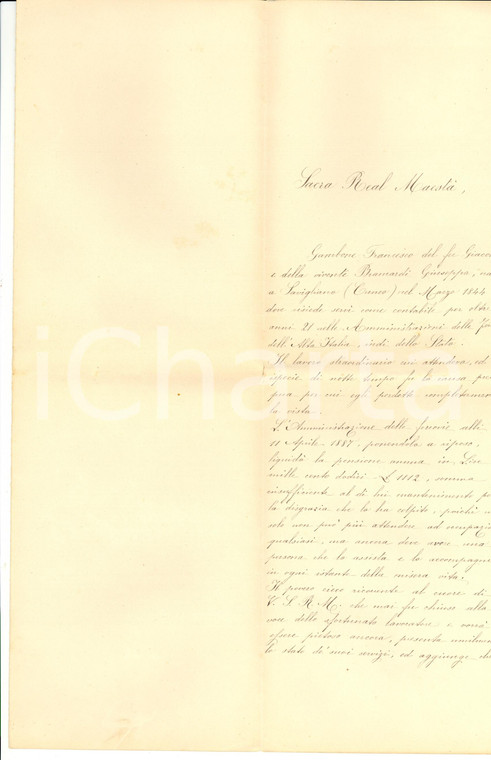 Sacra Real Maestà,
Gambone Francesco del fu Giaco
e della vivente Bramardi Giuseppa, na
a Savigliano (Cuneo) nel Marzo 1844
dove risiede servì come contabile per oltre
anni 21 nelle Amministrazioni delle
dell'Alta Italia, indi dello Stato.
Il lavoro straordinario cui attendeva, ed
ispecie di notte tempo fu la causa
per cui egli perdette completamen
la vista.
L'Amministrazione delle ferrovie alli
11 Aprile 1887, ponendola a riposo,
liquidò la pensione annua in Lire
mille cento dodici £ 1112, somma
insufficiente al di lui mantenimento
la disgrazia che lo ha colpito, poichè
solo non può più attendere ad occupazio
qualsiasi, ma ancora deve avere una
persona che lo assista e lo accompagni
in ogni istante della misera vita.
Il povero cieco ricorrente al cuore di
V. S. R. M. che mai fu chiuso alla
voce dello sfortunato lavoratore e vorrà
essere pietoso ancora, presenta umilmen
lo stato de' suoi servizi, ed aggiunge che
iCharta